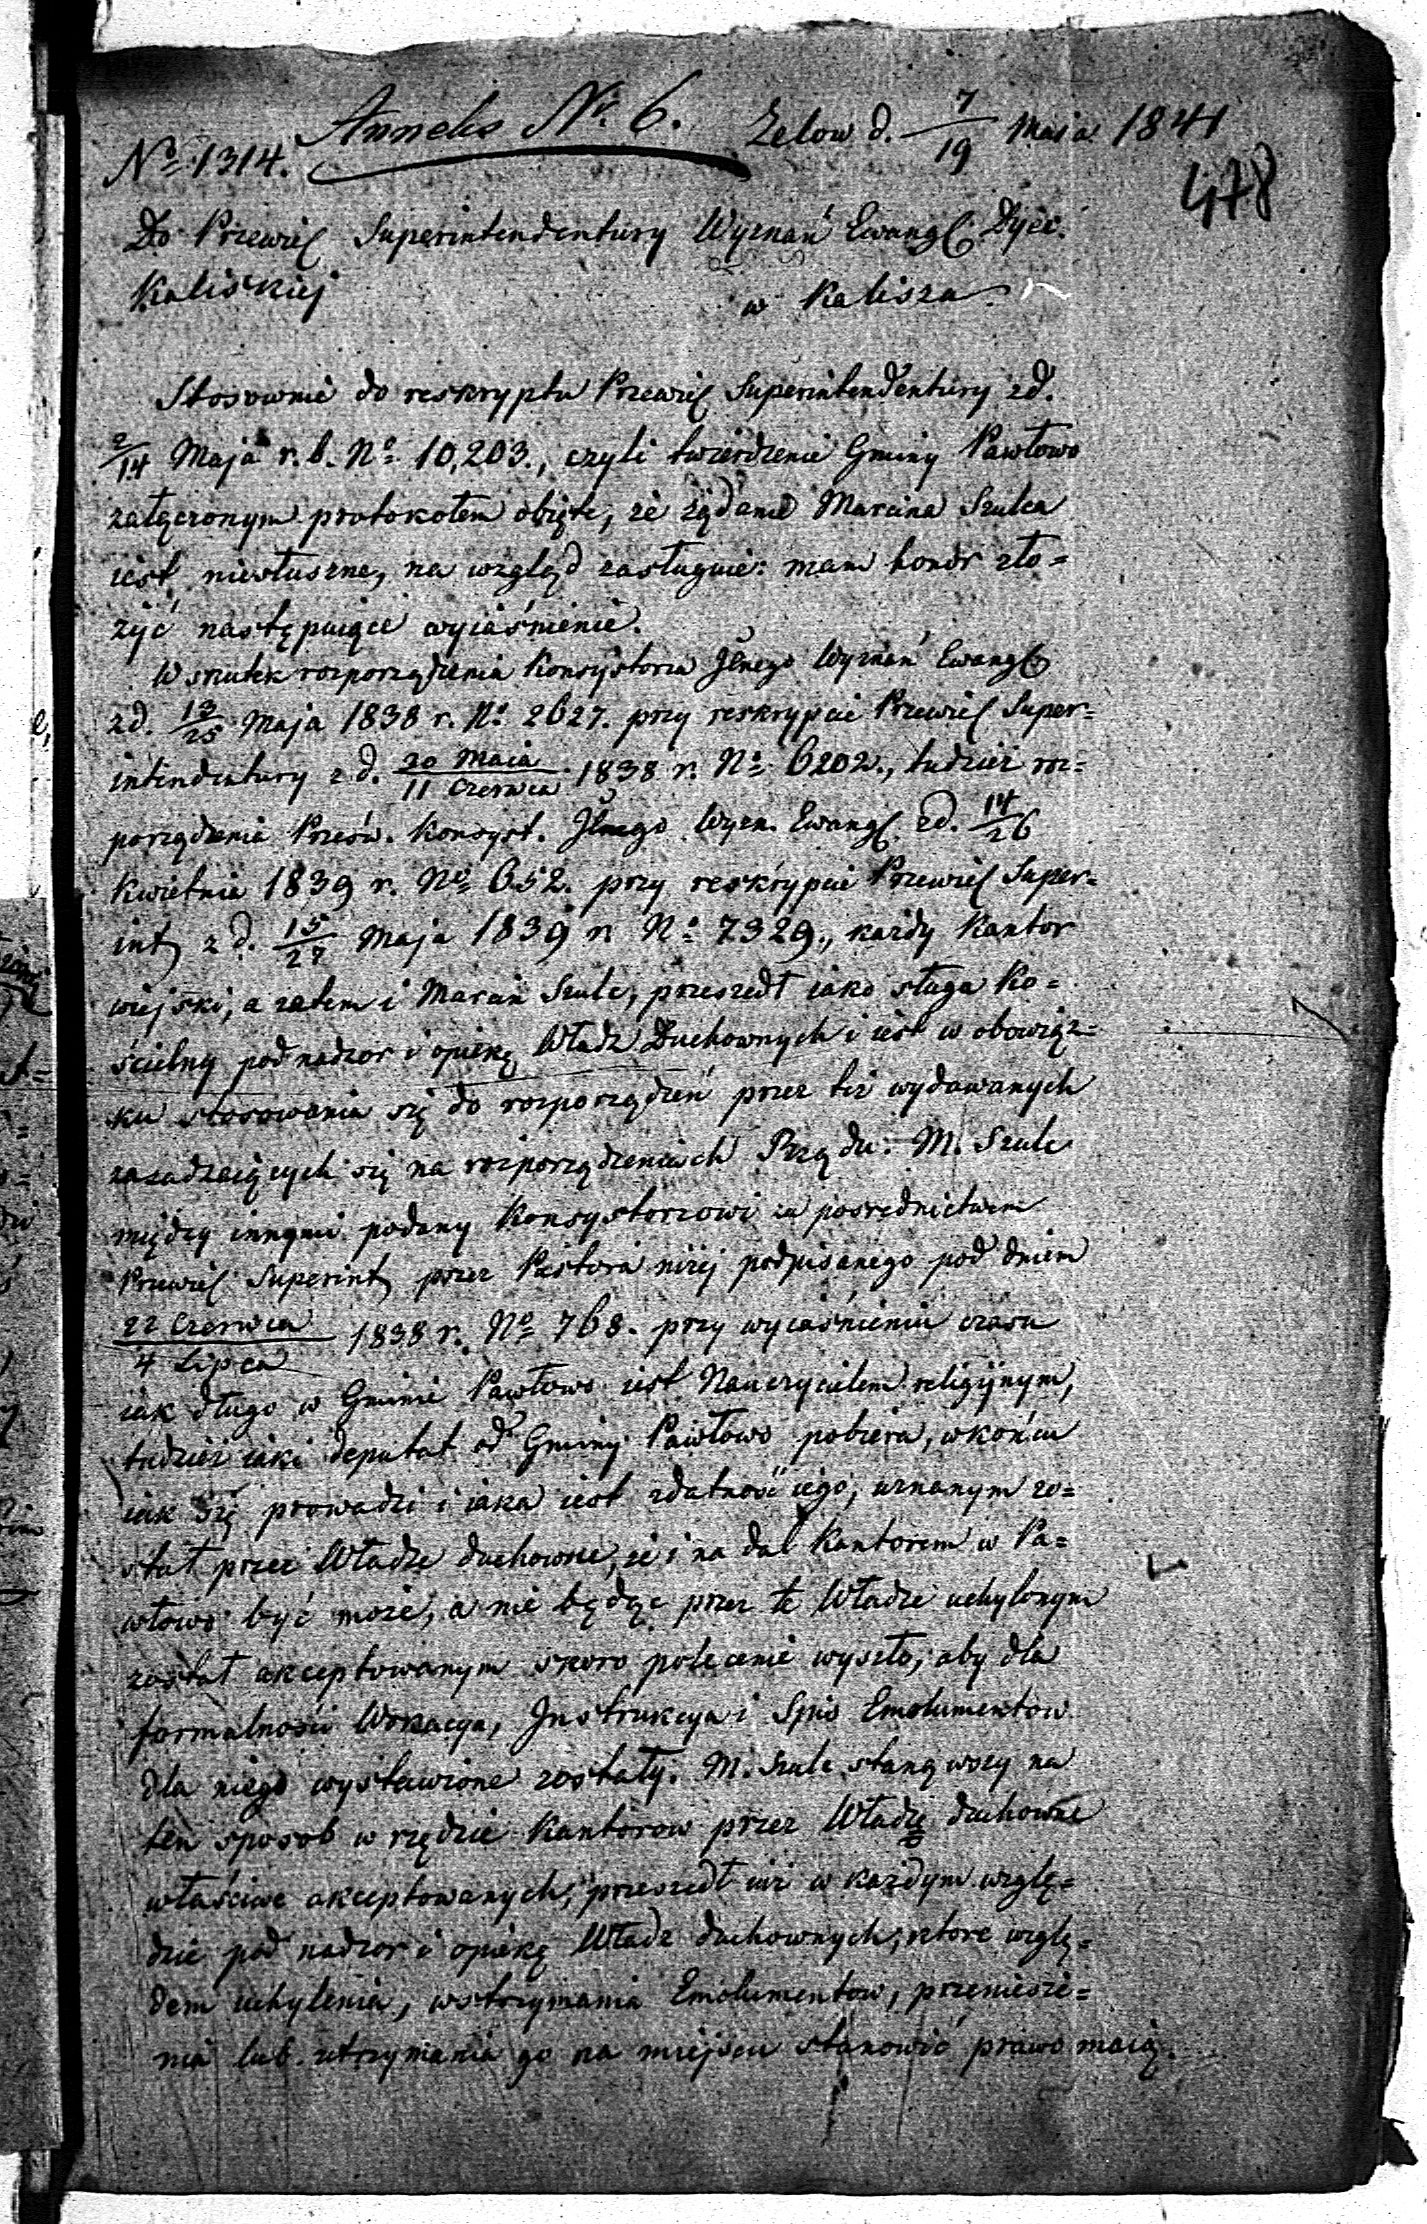 Anneks Nº 6. Zelow d. 7/19 Maia 1841
Nº 1314.
478
Do Przewiel Superintendentury Wyznań Ewangl Dyec.
Kaliskiej
w Kaliszu
Stosownie do reskryptu Przewiel Superintendentury zd.
2/14 Maja r. b. Nº 10,203., czyli twierdzenie Gminy Pawłowo
załączonym protokołem obięte, że żądanie Marcina Szulca
iest niesłuszne, na wzgląd zasługuie: mam honor zło=
żyć następuiące wyiaśnienie.
W skutek rozporządzenia Konsystorza Jlnego Wyznań Ewangl
zd. 13/25 Maja 1838 r. Nº 2627. przy reskrypcie Przewiel Super=
intendentury z d. 20 Maia/11 Czerwca 1838 r. Nº 6202., tudzież roz=
porządzenia Prześw. Konsyst. Jlnego Wyzn. Ewangl. zd. 14/26
Kwietnia 1839 r. Nº 652. przy reskrypcie Przewiel Super=
int z d. 15/27 Maja 1839 r. Nº 7329., każdy Kantor
wiejski, a zatem i Marcin Szulc, przeszedł iako sługa Ko=
ścielny pod nadzor i opiekę Władz Duchownych i iest w obowiąz=
ku stosowania się do rozporządzeń przez też wydawanych
zasadzaiących się na rozporządzeniach Rządu. M. Szulc
między innymi podany Konsystorzowi za pośrednictwem
Przewiel Superint przez Pastora niżej podpisanego pod dniem
22 Czerwca/4 Lipca 1838 r. Nº 768. przy wyiaśnieniu czasu
iak długo w Gminie Pawłowo iest Nauczycielem religijnym,
tudzież iaki deputat od Gminy Pawłowo pobiera, wkońcu
iak się prowadzi i iaka iest zdatność iego, uznanym zo=
stał przez Władze duchowne, że i na dal Kantorem w Pa=
włowo być może, a nie będąc przez te Władze uchylonym
został akceptowanym skoro polecenie wyszło, aby dla
formalności Wokacya, Instrukcya i Spis Emolumentow
dla niego wystawione zostały. M. Szulc stanąwszy na
ten sposob w rzędzie Kantorow przez Władzę duchowne
właściwe akceptowanych, przeszedł iuż w każdym wzglę=
dzie pod nadzor i opiekę Władz duchownych, ktore wzglę=
dem uchylenia, wstrzymania Emolumentow, przeniesie=
nia lub utrzymania go na miejscu stanowić prawo maią.